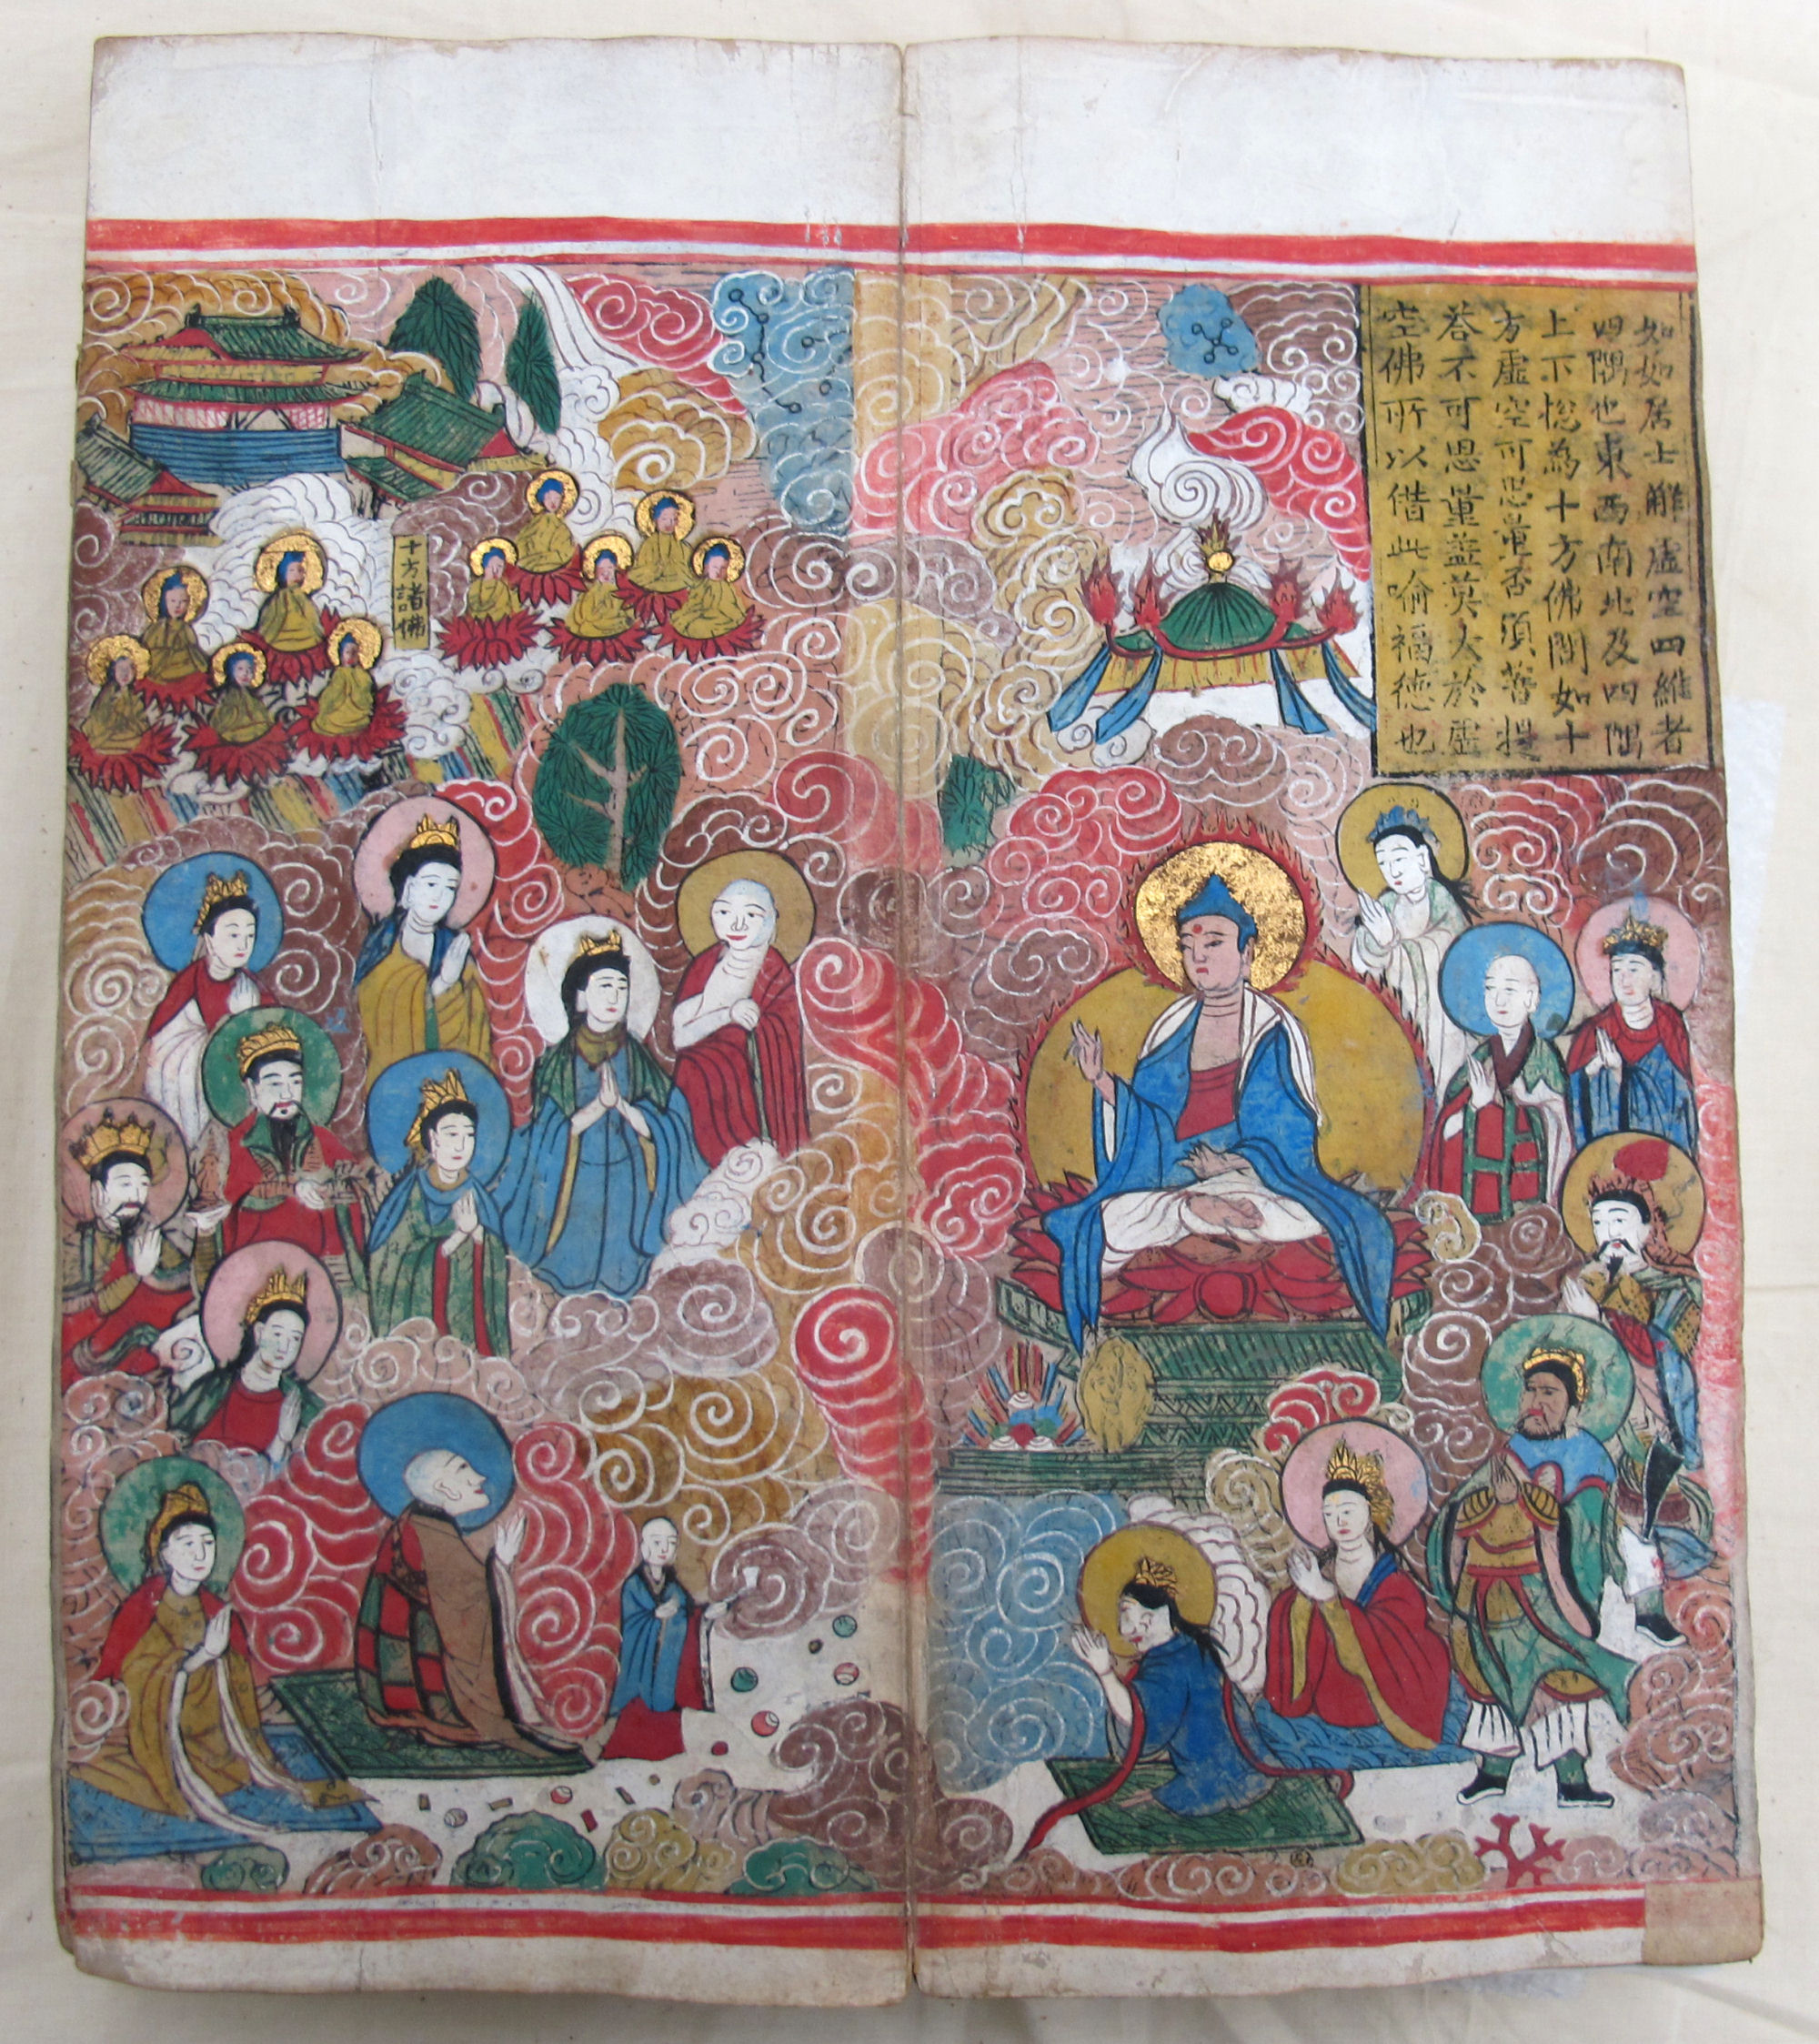 如如居士解虛空四維者
四隅也東西南北及四隅
上下揔為十方佛問如十
方虛空可思量否須菩提
荅不可思量盖莫大於虛
空佛所以借此喻福德也
十方諸佛